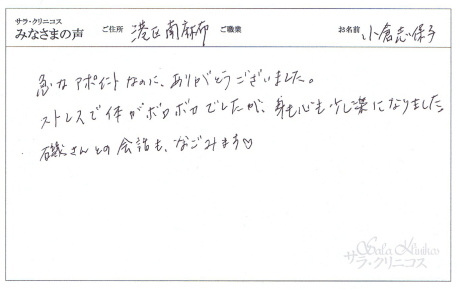 サラ・クリニコス
みなさまの声 ご住所 港区南麻布 ご職業 お名前 小倉志保子
急なアポイントなのに、ありがとうございました。
ストレスで体がボロボロでしたが、身も心も少し楽になりました
磯さんとの会話も、なごみます♡
Sala Klinikos
サラ・クリニコス